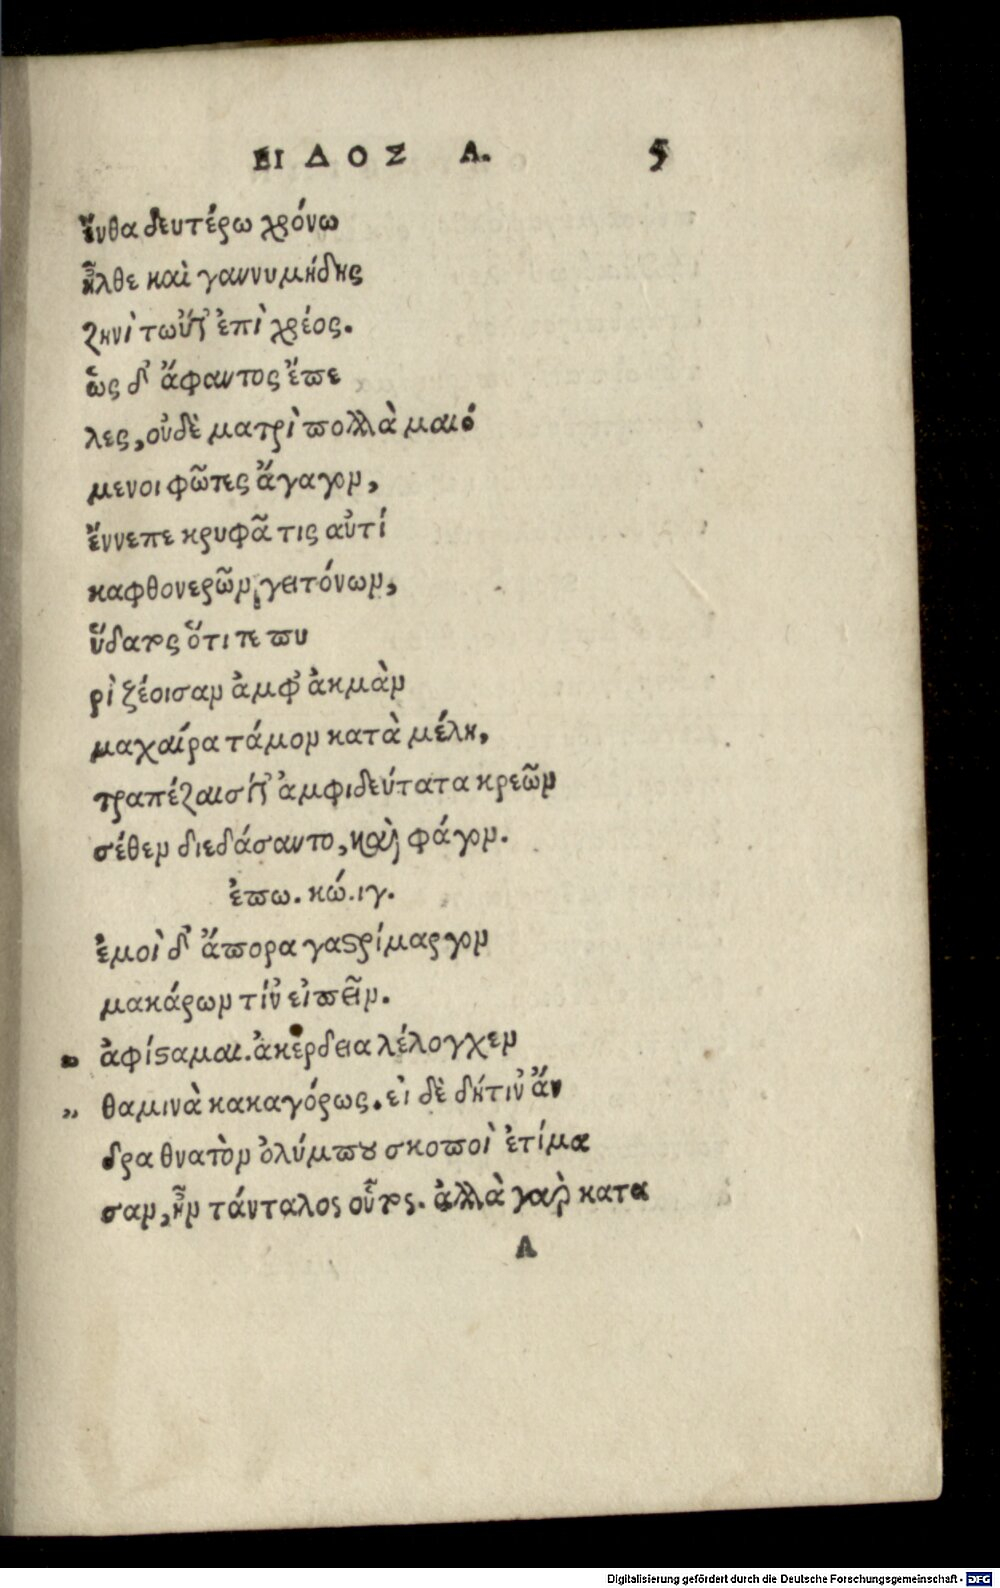 ΕΙΔΟΣ Α. 5
ἔνθα δευτέρω χρόνω
ἦλθε καὶ γαννυμήδης
ζηνὶ τωὔτ' ἐπὶ χρέος.
ὡς δ' ἄφαντος ἔπε
λες, οὐδὲ ματρὶ πολλὰ μαιό
μενοι φῶτες ἄγαγον,
ἔννεπε κρυφᾶ τις αὐτί
κα φθονερῶν γειτόνων,
ὕδατος ὅτι τε πυ
ρὶ ζέοισαν ἀμφ' ἀκμὰν
μαχαίρα τάμον κατὰ μέλη,
τραπέζαισί τ' ἀμφιδεύτατα κρεῶν
σέθεν διεδάσαντο, καὶ φάγον.
ἐπω. κώ. ιγ.
ἐμοὶ δ' ἄπορα γαστρίμαργον
μακάρων τίν' εἰπεῖν.
„ ἀφίσταμαι. ἀκέρδεια λέλογχεν
„ θαμινὰ κακαγόρως. εἰ δὲ δή τιν' ἄν
δρα θνατὸν ὀλύμπου σκοποὶ ἐτίμα
σαν, ἦν τάνταλος οὗτος. ἀλλὰ γὰρ κατα
Α
Digitalisierung gefördert durch die Deutsche Forschungsgemeinschaft - DFG